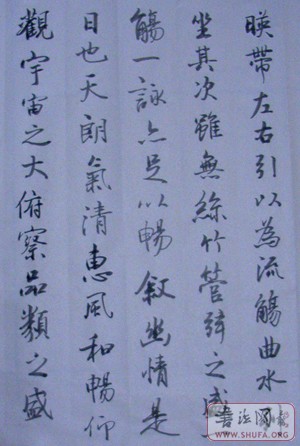 暎帶左右引以為流觴曲水
坐其次雖無絲竹管弦之盛
觴一詠亦足以暢叙幽情是
日也天朗氣清惠風和暢仰
觀宇宙之大俯察品類之盛
書法网
WWW.SHUFA.ORG